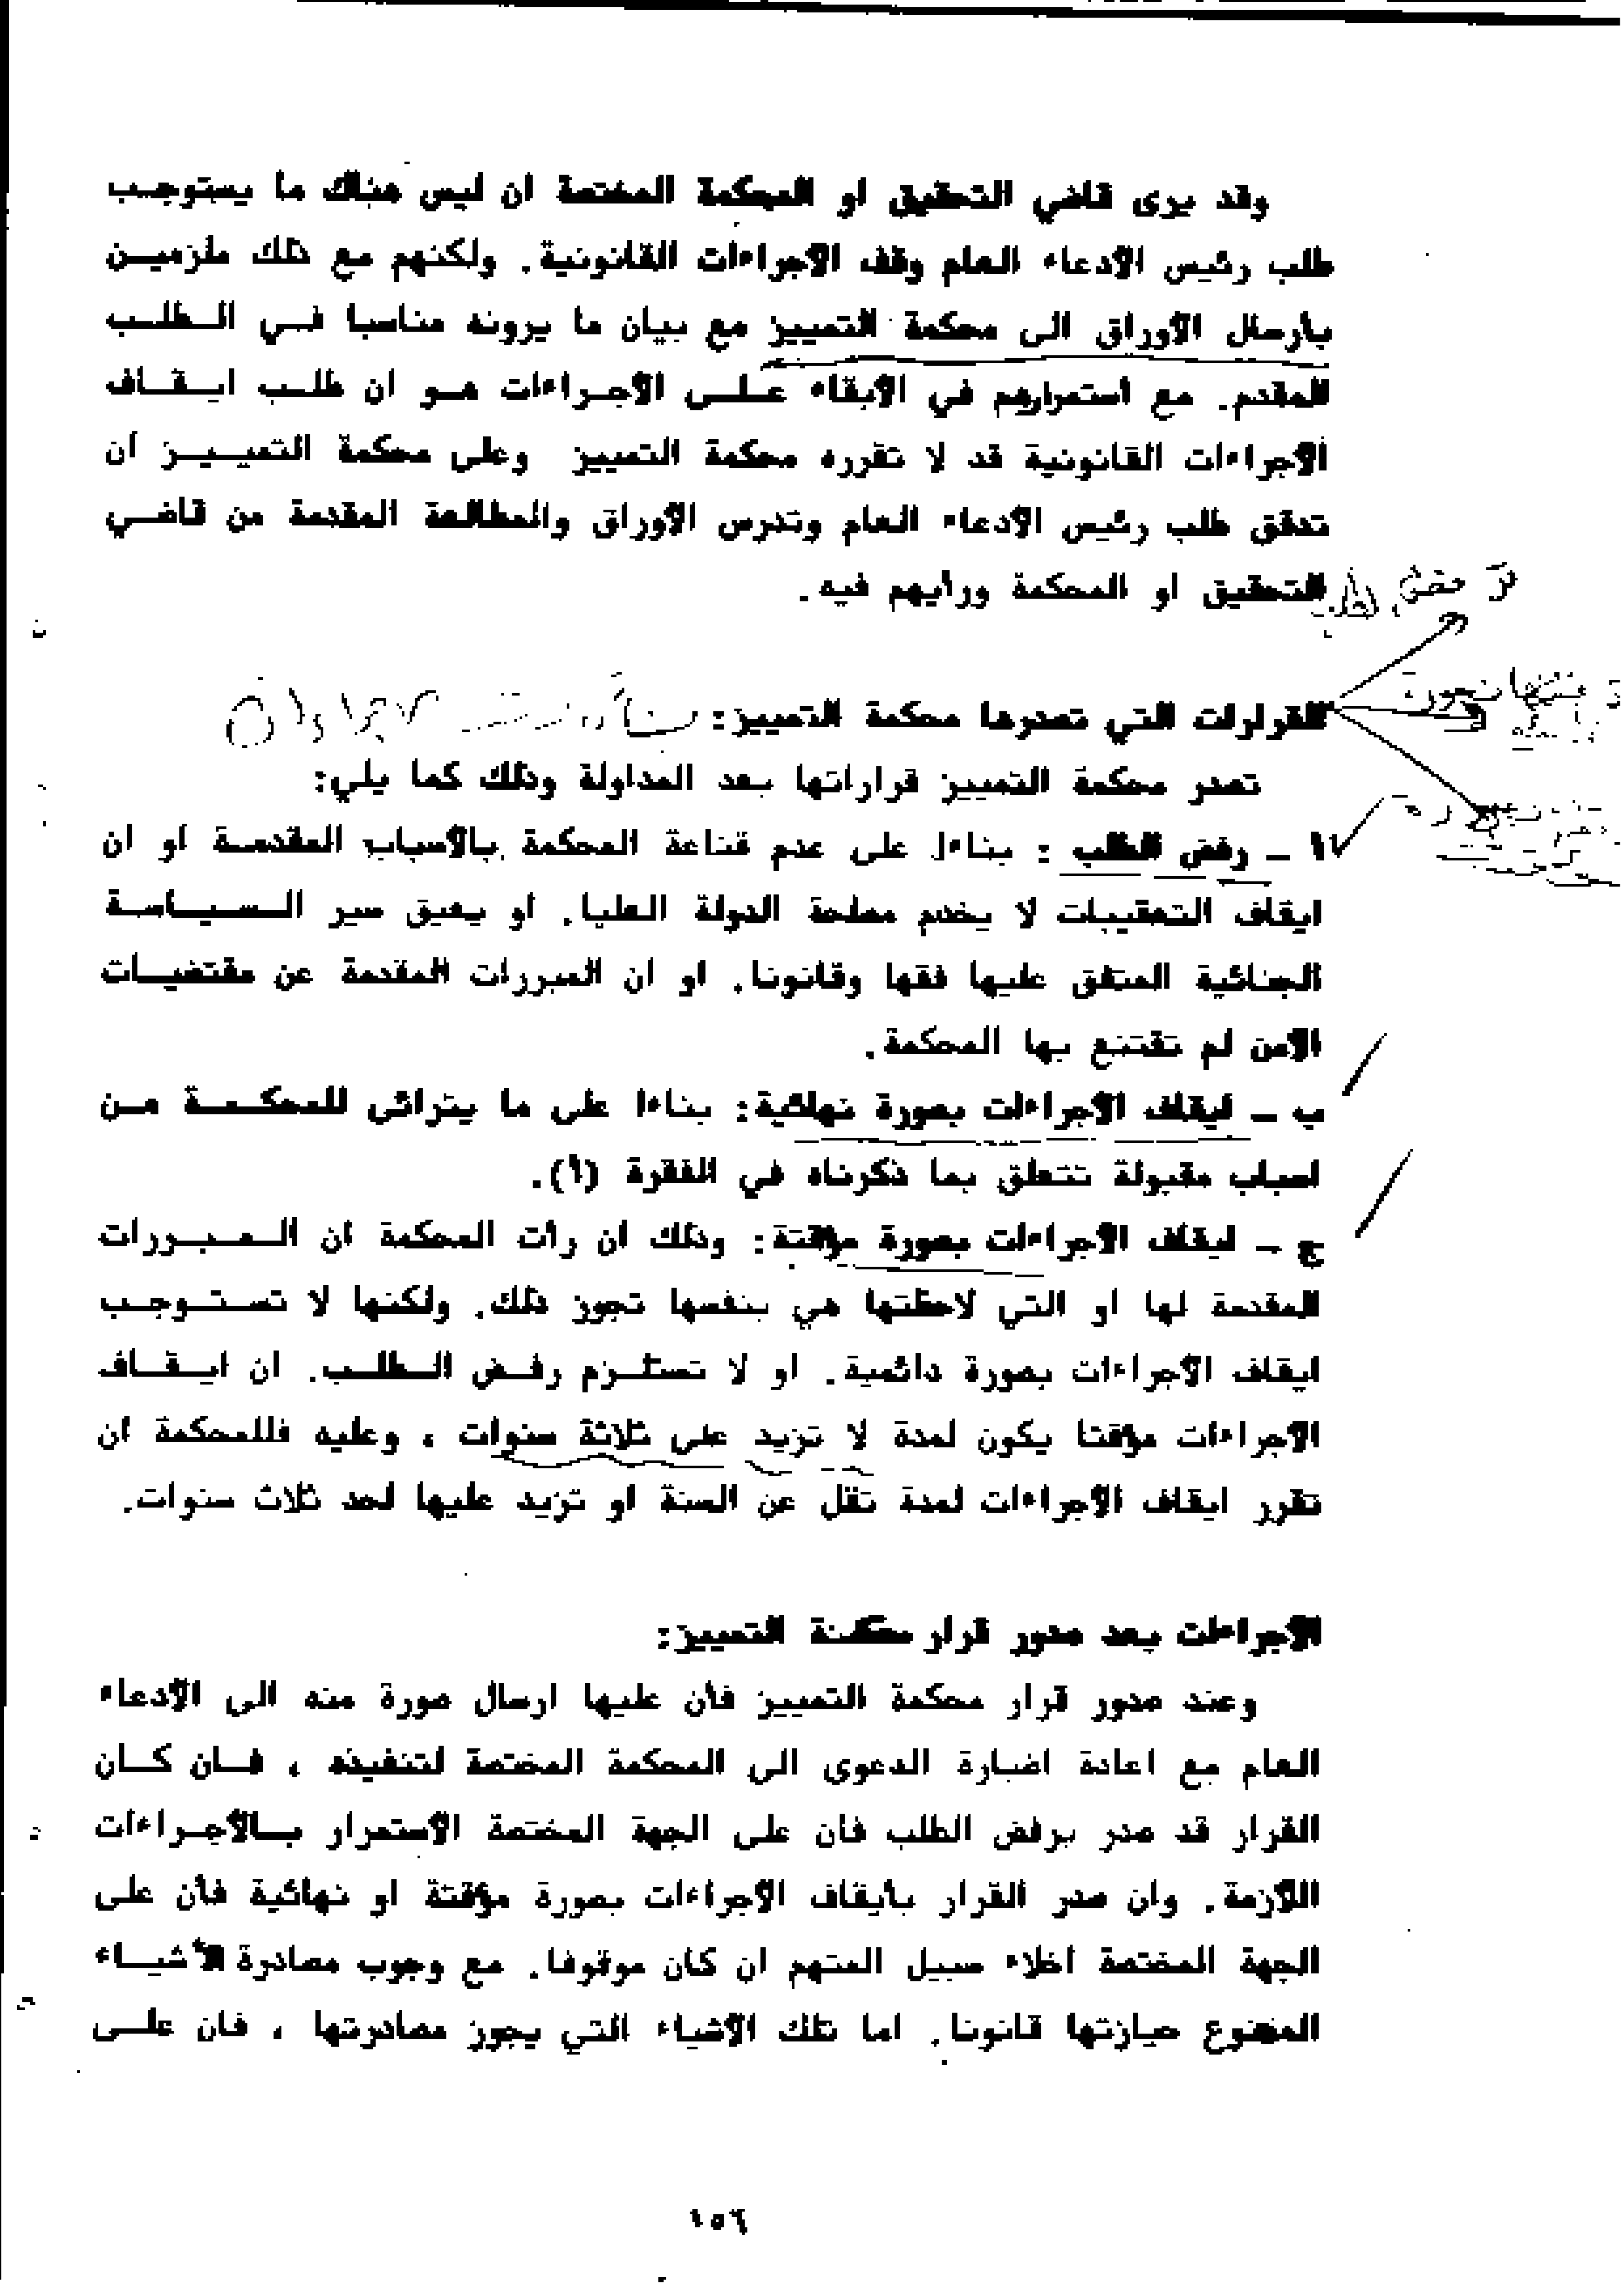 وقد يرى قاضي التحقيق او المحكمة المختصة ان ليس هناك ما يستوجب
طلب رئيس الادعاء العام وقف الاجراءات القانونية. ولكنهم مع ذلك ملزمين
بأرسال الأوراق الى محكمة التمييز مع بيان ما يرونه مناسبا في الطلب
المقدم. مع استمرارهم في الأبقاء على الاجراءات هو ان طلب ايقاف
الأجراءات القانونية قد لا تقرره محكمة التمييز وعلى محكمة التمييز ان
تدقق طلب رئيس الادعاء العام وتدرس الأوراق والمطالعة المقدمة من قاضي
التحقيق او المحكمة ورأيهم فيه.
القرارات التي تصدرها محكمة التمييز:
تصدر محكمة التمييز قراراتها بعد المداولة وذلك كما يلي:
أ - رفض الطلب : بناءا على عدم قناعة المحكمة بالأسباب المقدمة او ان
ايقاف التعقيبات لا يخدم مصلحة الدولة العليا. او يعيق سير السياسة
الجنائية المتفق عليها فقها وقانونا. او ان المبررات المقدمة عن مقتضيات
الأمن لم تقتنع بها المحكمة.
ب - ايقاف الاجراءات بصورة نهائية: بناءا على ما يترائى للمحكمة من
اسباب مقبولة تتعلق بما ذكرناه في الفقرة (أ).
ج - ايقاف الاجراءات بصورة مؤقتة: وذلك ان رأت المحكمة ان المبررات
المقدمة لها او التي لاحظتها هي بنفسها تجوز ذلك. ولكنها لا تستوجب
ايقاف الأجراءات بصورة دائمية. او لا تستلزم رفض الطلب. ان ايقاف
الاجراءات مؤقتا يكون لمدة لا تزيد على ثلاثة سنوات ، وعليه فللمحكمة ان
تقرر ايقاف الأجراءات لمدة تقل عن السنة او تزيد عليها لحد ثلاث سنوات.
الأجراءات بعد صدور قرار محكمة التمييز:
وعند صدور قرار محكمة التمييز فأن عليها ارسال صورة منه الى الأدعاء
العام مع اعادة اضبارة الدعوى الى المحكمة المختصة لتنفيذه ، فان كان
القرار قد صدر برفض الطلب فان على الجهة المختصة الأستمرار بالأجراءات
اللازمة. وان صدر القرار بأيقاف الأجراءات بصورة مؤقتة او نهائية فأن على
الجهة المختصة أخلاء سبيل المتهم ان كان موقوفا. مع وجوب مصادرة الأشياء
الممنوع حيازتها قانونا. اما تلك الأشياء التي يجوز مصادرتها ، فان على
١٥٦